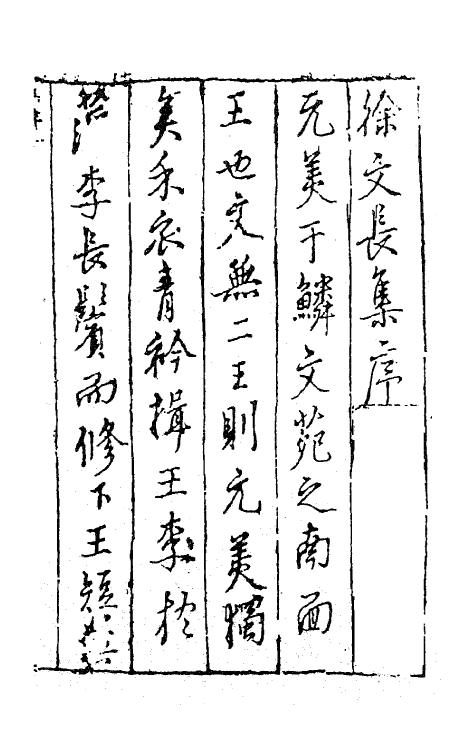 徐文長集序
元美于鱗文苑之南面
王也文無二王則元美獨
矣余衣青衿揖王李於
李長鬢而修下王短